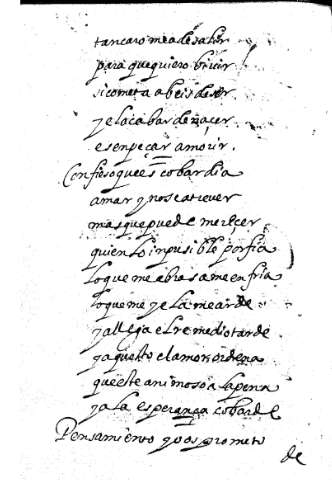 tan caro me a de salir
para que quiero bivir
si cometa abeis de ser
y el acabar de naçer
es enpeçar a morir.
Confieso que es cobardia
amar y no se atrever
mas que puede mereçer
quien lo inpusible porfia
lo que me abrasa me enfria
lo que me yela me arde
y allega el remedio tarde
ya questo el amor ordena
que este animoso a la pena
y a la esperança cobarde
Pensamiento yo os prometo
de